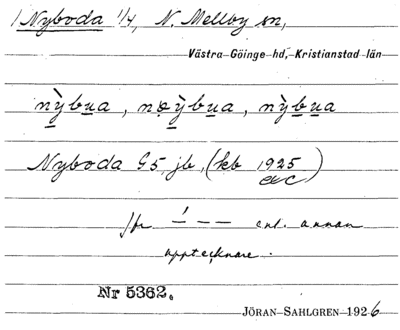 1 Nyboda 1/4, N. Mellby sn,
Västra Göinge hd, Kristianstad län
nỳbu̲a, nøỳbu̲a, nỳbu̲a
Nyboda G5, jb, (kb 1925
etc)
Jfr –́ – – enl. annan
upptecknare.
Nr 5362.
JÖRAN SAHLGREN 1926